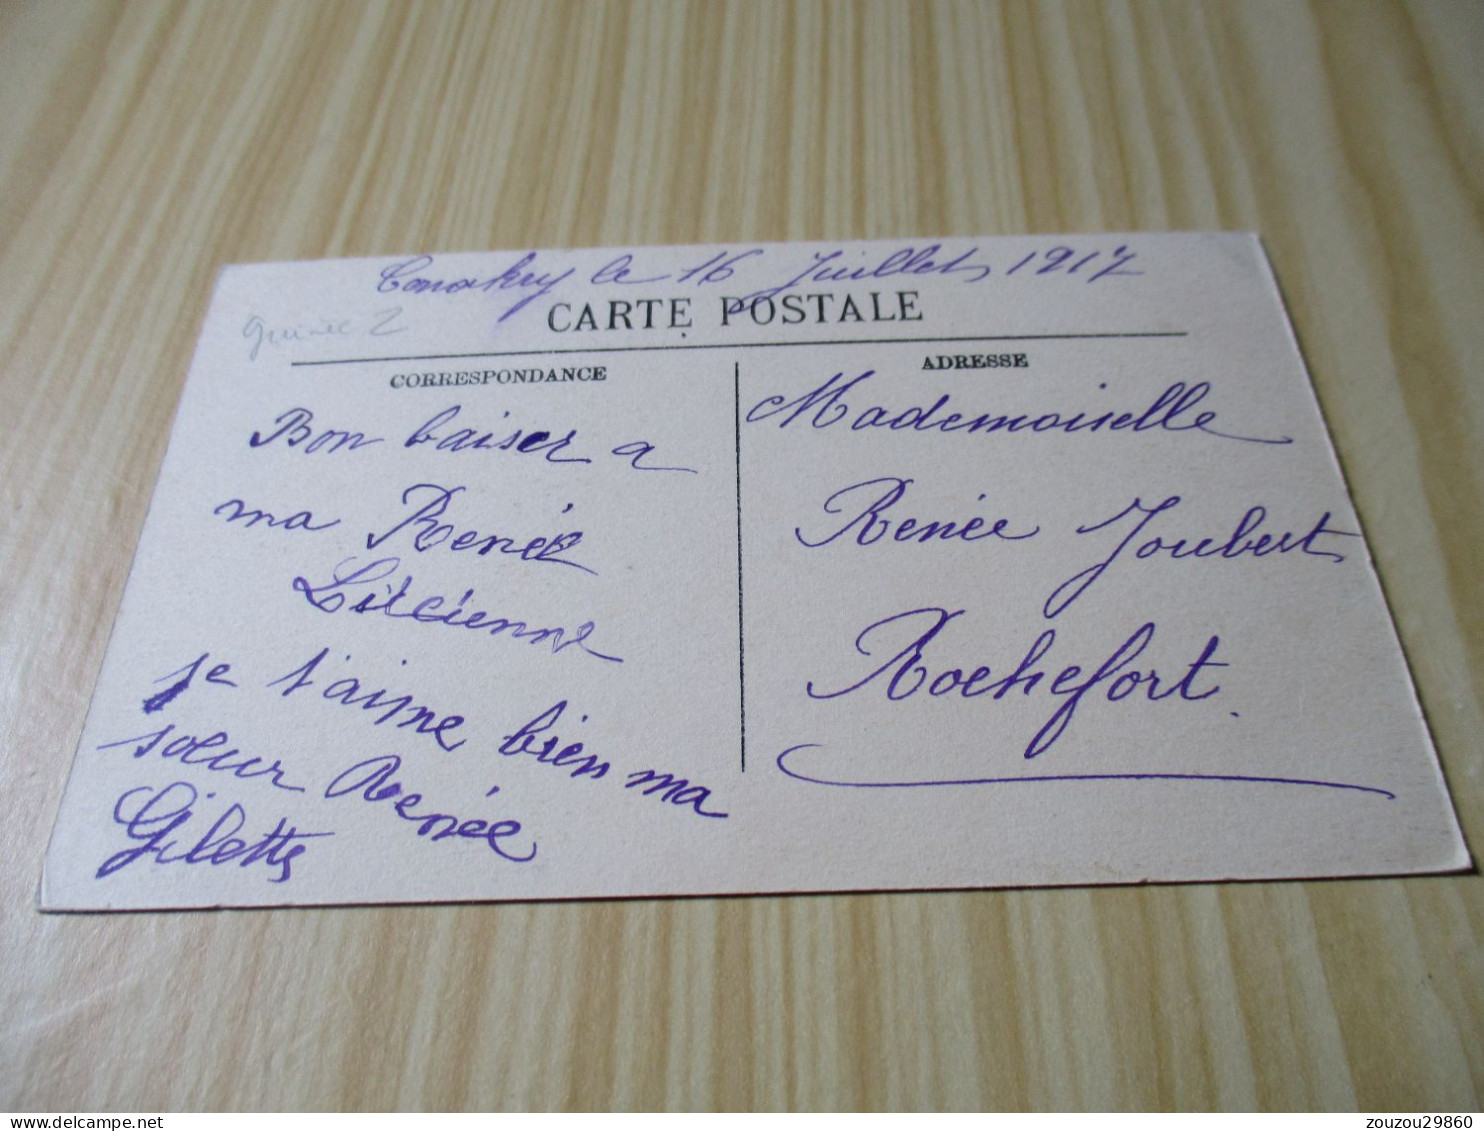 Conakry le 16 Juillet 1917
CARTE POSTALE
Guinée 2
CORRESPONDANCE
Bon baiser a
ma Renée
Lucienne
je t'aime bien ma
soeur Renée
Gilette
ADRESSE
Mademoiselle
Renée Joubert
Rochefort.
zouzou29860